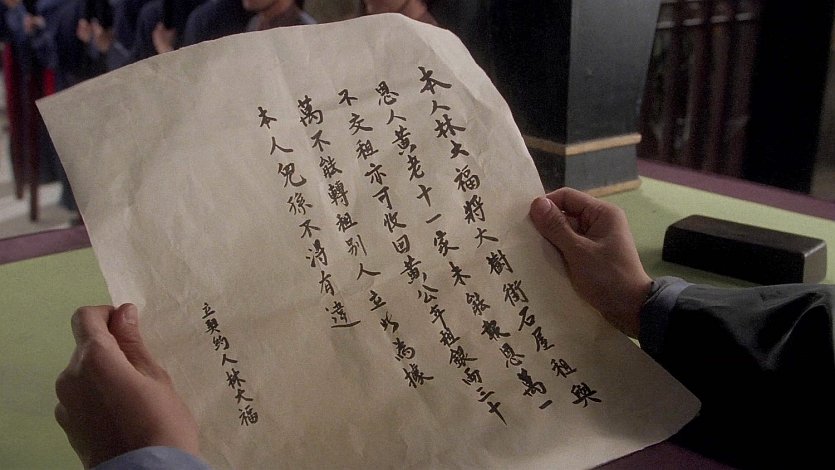 本人林大福將大樹街石屋租與
恩人黃老十一家未能報恩萬一
不交租亦可收回黃公年租銀兩三十
萬不能轉租别人立此為據
本人兒孫不得有違
立契約人林大福